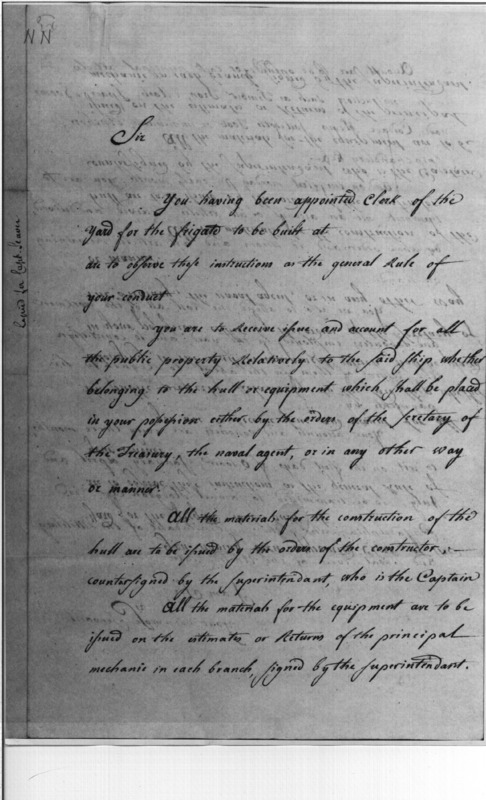 NN
Copied for Capt.
Sir
You having been appointed Clerk of the
Yard for the frigate to be built at
are to observe these instructions as the general Rule of
your conduct
you are to Receive issue and account for all
the public property Relatively to the said ship whether
belonging to the hull or equipment which shall be placed
in your possession either by the orders of the secretary of
the Treasury, the naval agent, or in any other way
or manner.
All the materials for the construction of the
hull are to be issued by the orders of the constructor, —
countersigned by the superintendant, who is the Captain
All the materials for the equipment are to be
issued on the estimates or Returns of the principal
mechanic in each branch, signed by the superintendant.